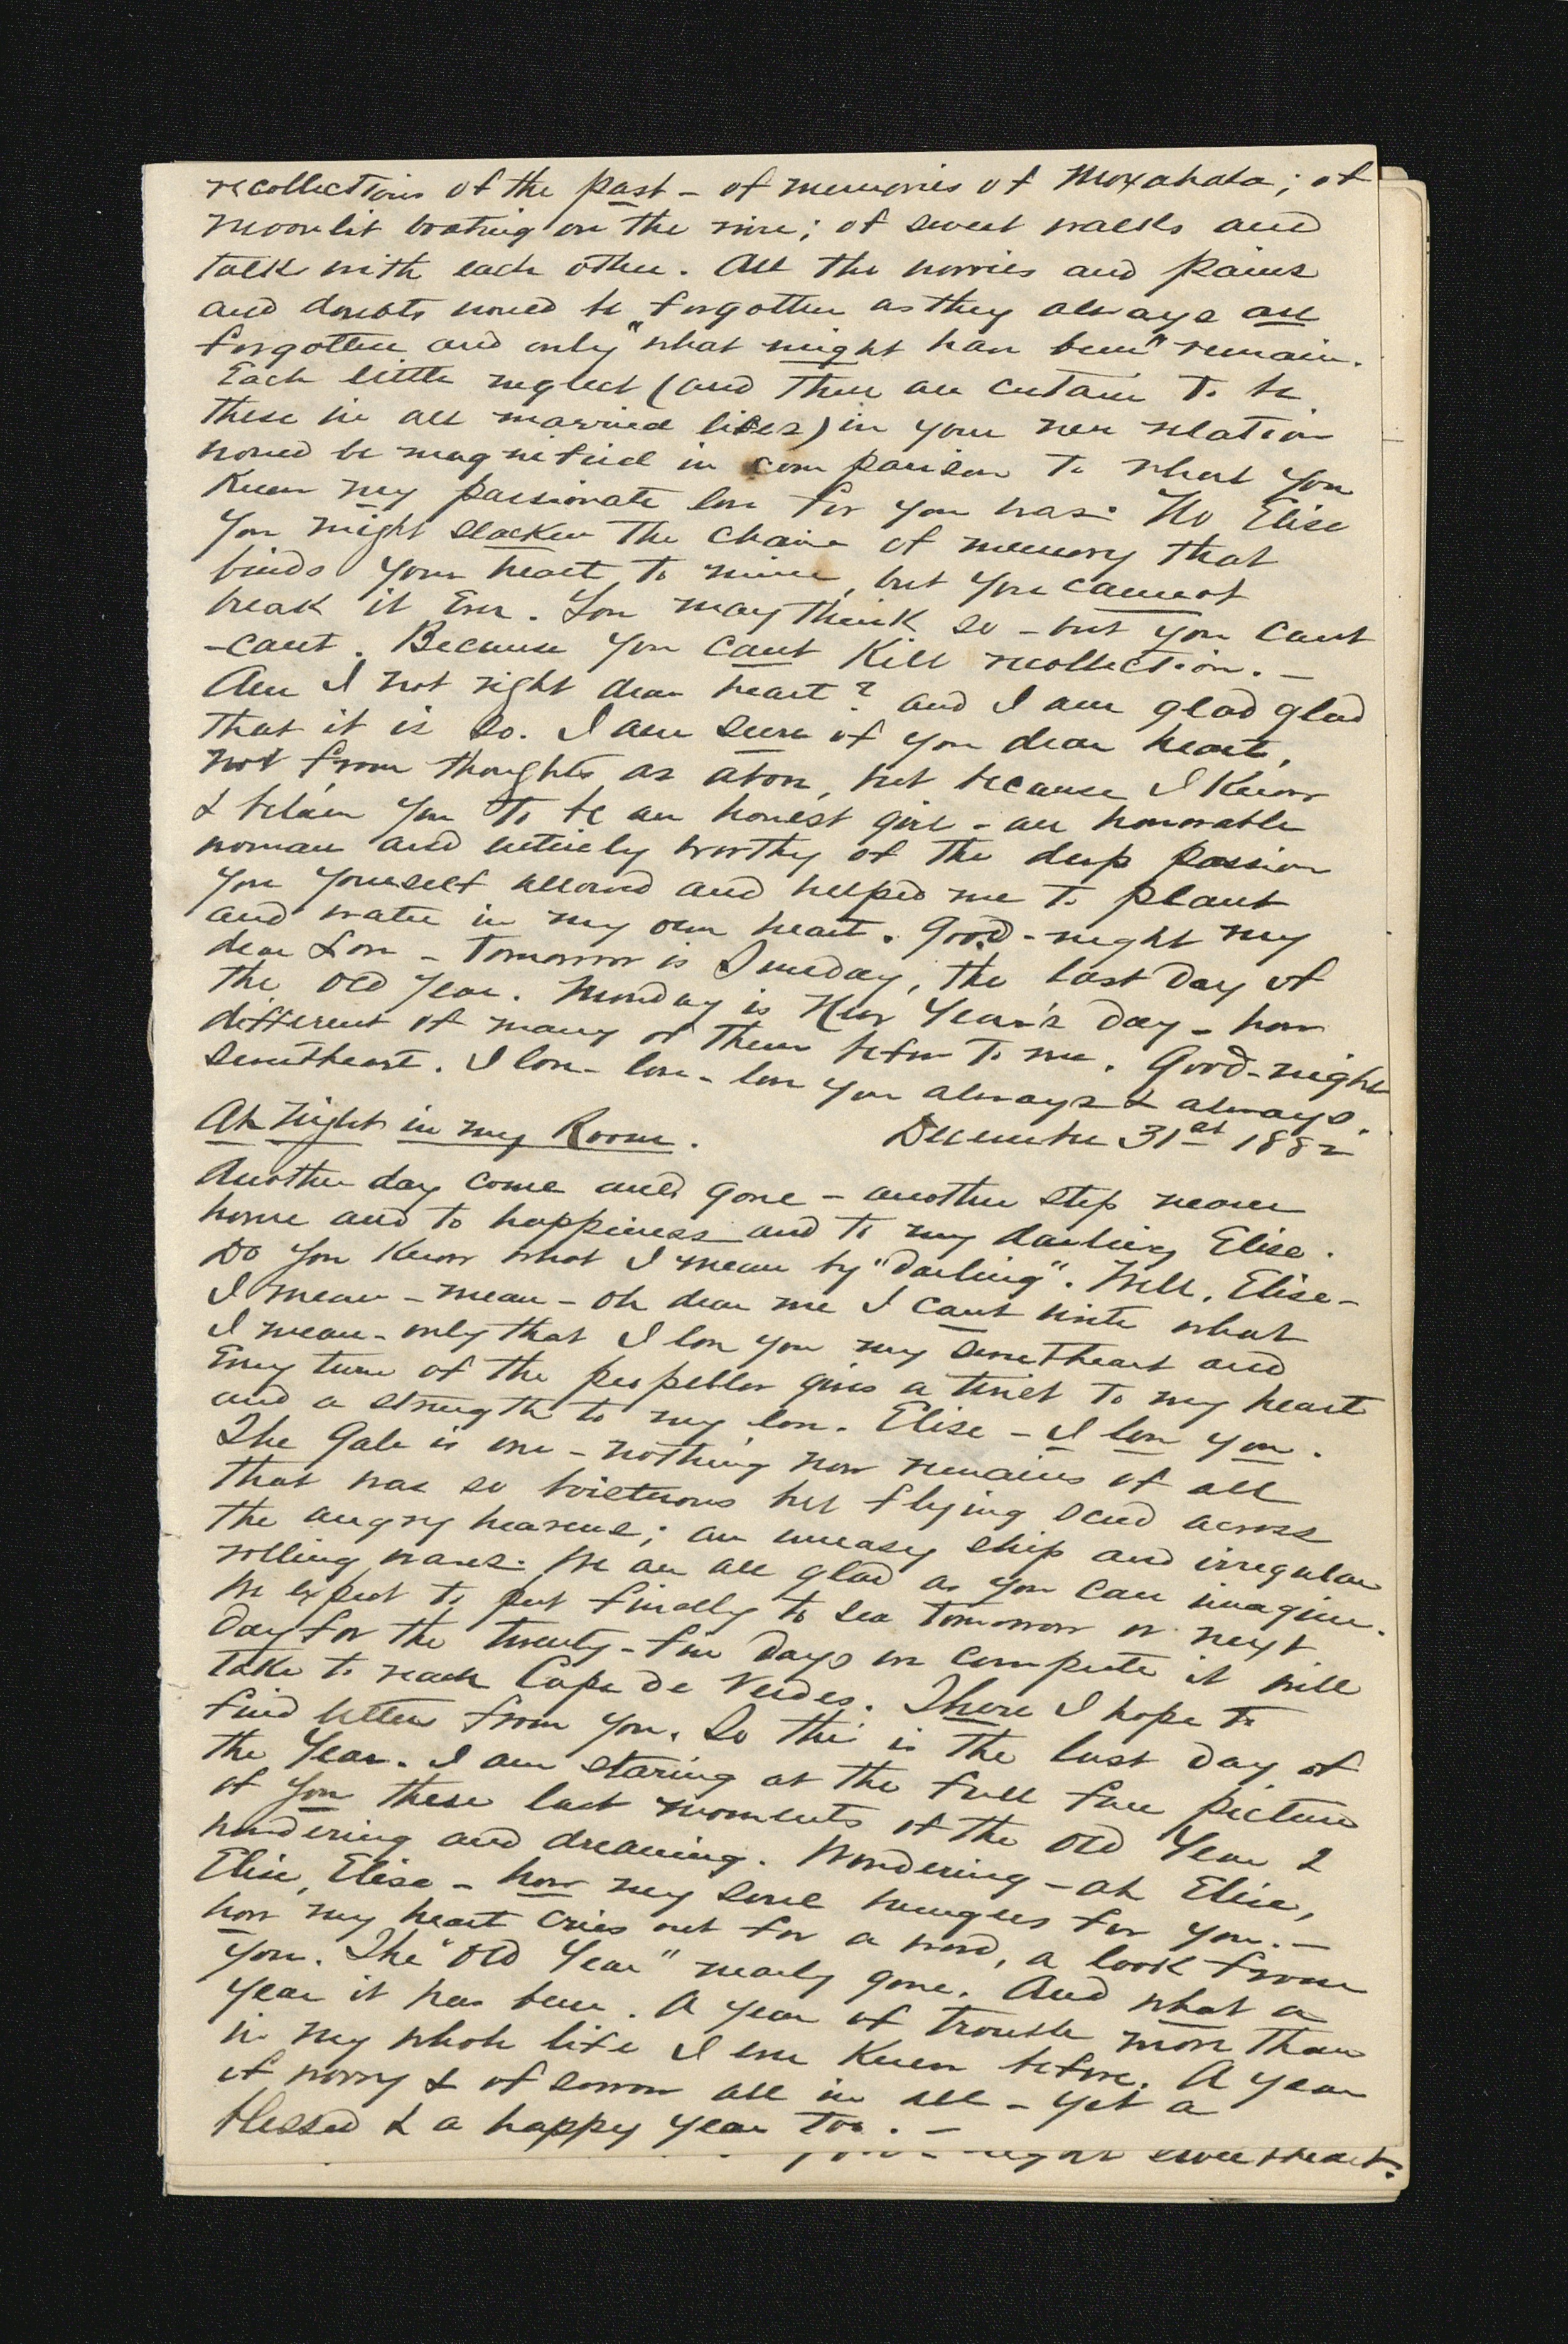 recollections of the past - of memories of Moxahala; of
moonlit boating on the river; of sweet walks and
talks with each other. All the worries and pains
and doubts would be forgotten as they always are
forgotten and only "what might have been" remain.
Each little neglect (and there are certain to be
these in all married lives) in your new relation
would be magnified in comparison to what you
knew my passionate love for you was. No Elise
you might slacken the chain of memory that
binds your heart to mine, but you cannot
break it ever. You may think so - but you cant
-cant. Because you cant kill recollection. -
Am I not right dear heart? and I am glad glad
that it is so. I am sure of you dear heart,
not from thoughts as above, but because I know
& believe you to be an honest girl - an honorable
woman and entirely worthy of the deep passion
you yourself allowed and helped me to plant
and water in my own heart. Good-night my
dear Love - Tomorrow is Sunday, the last day of
the old year. Monday is New Year's day - how
different of many of them before to me. Good-night
sweetheart. I love - love - love you always & always.
At Night in my Room. December 31st 1882
Another day come and gone - another step nearer
home and to happiness and to my darling Elise.
Do you know what I mean by "darling". Well, Elise -
I mean - mean - oh dear me I cant write what
I mean - only that I love you my sweetheart and
Every turn of the propellor gives a thrill to my heart
and a strength to my love. Elise - I love you.
The Gale is over - nothing now remains of all
that was so boisterous but flying scud across
the angry heavens; an uneasy ship and irregular
rolling waves. We are all glad as you can imagine.
We expect to put finally to sea tomorrow or next
day for the twenty-five days we compute it will
take to reach Cape de Verdes. There I hope to
find letters from you. So this is the last day of
the Year. I am staring at the full face picture
of you these last moments of the Old Year &
wondering and dreaming. Wondering - ah Elise,
Elise, Elise - how my soul hungers for you. -
how my heart cries out for a word, a look from
you. The "Old Year" nearly gone. And what a
year it has been. A year of trouble more than
in my whole life I ever knew before. A year
of worry & of sorrow all in all - yet a
blessed & a happy year too. -
sweetheart.